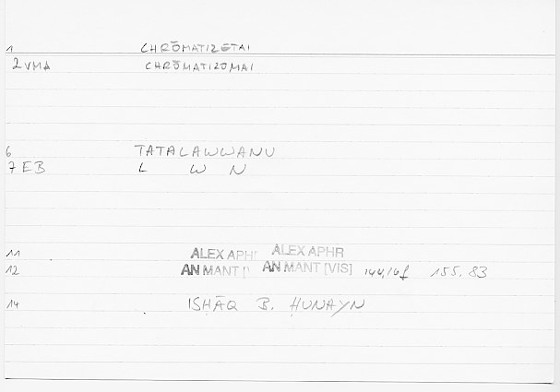 1 CHRŌMATIZETAI
2 VMA CHRŌMATIZOMAI
6 TATALAWWANU
7 EB L W N
11 ALEX APH ALEX APHR
12 AN MANT [ AN MANT [VIS] 144,16f 155.83
14 ISḤĀQ B. ḤUNAYN